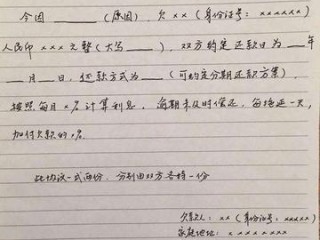 今因______(原因),欠××(身份证号:××××××)
人民币×××元整(大写____),双方约定还款日为__年
__月__日,还款方式为____(可约定分期还款方案),
按照每月×%计算利息,逾期未及时偿还,每拖延一天,
加付欠款的×%。
此协议一式两份,分别由双方各持一份
欠款人:××(身份证号:×××××
家庭地址:××××××××